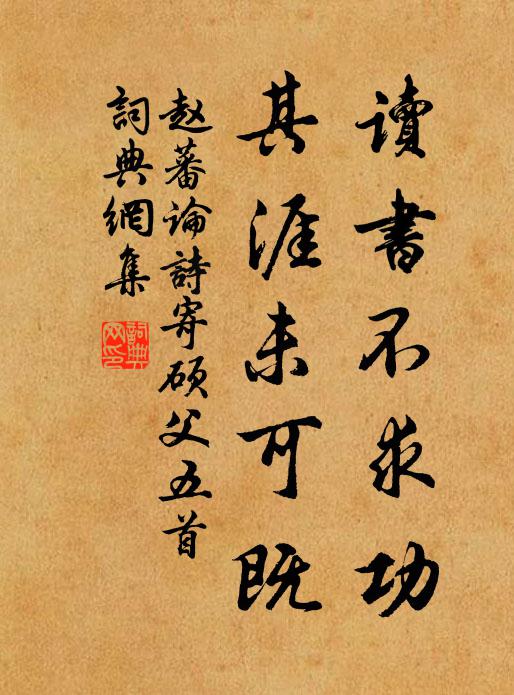 讀書不求功
其涯未可既
赵蕃論詩寄硕父五首
詞典網集
詞典网印